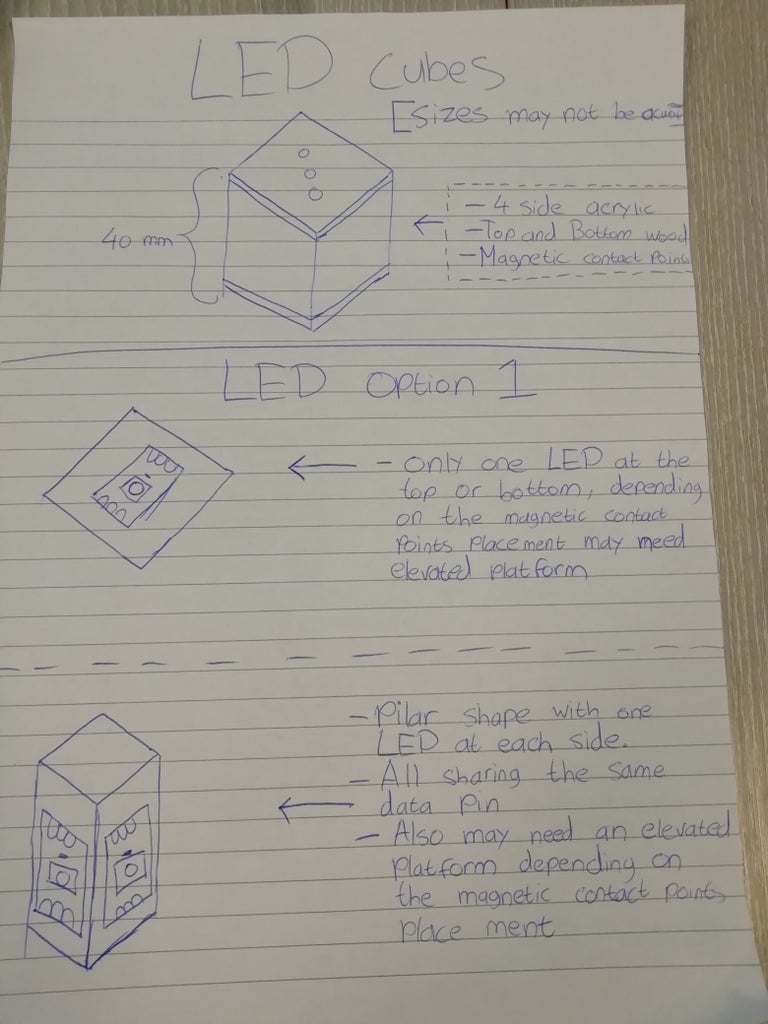 LED Cubes
[Sizes may not be
40 mm
- 4 side acrylic
- Top and Bottom wood
- Magnetic contact Points
LED Option 1
- Only one LED at the
top or bottom, depending
on the magnetic contact
Points Placement may meed
elevated platform
- Pilar shape with one
LED at each side.
- All sharing the same
data pin
- Also may need an elevated
Platform depending on
the magnetic contact points
Place ment